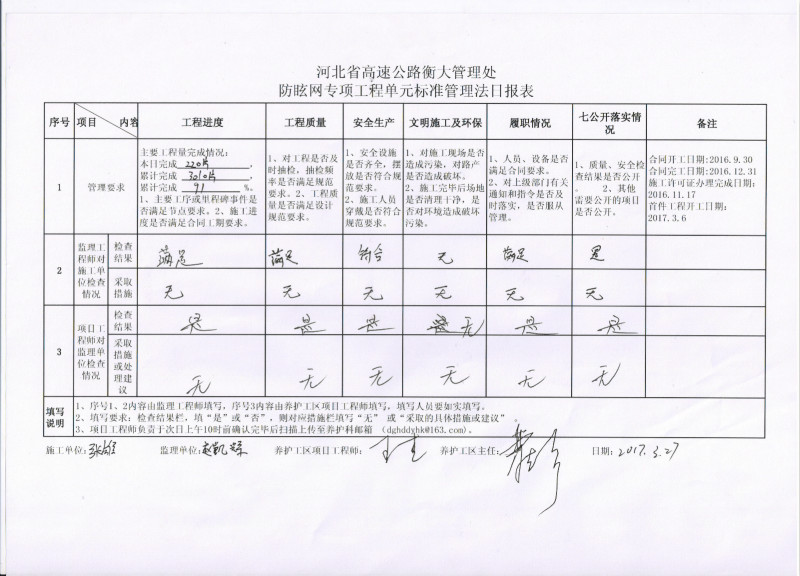 河北省高速公路衡大管理处
防眩网专项工程单元标准管理法日报表
序号 项目 内容 工程进度 工程质量 安全生产 文明施工及环保 履职情况 七公开落实情况 备注
1 管理要求
主要工程量完成情况:
本日完成 220片 ,
累计完成 3010片 ,
累计完成 91 %。
1、主要工序或里程碑事件是
否满足节点要求。2、施工进
度是否满足合同工期要求。
1、对工程是否及
时抽检，抽检频
率是否满足规范
要求。2、工程质
量是否满足设计
规范要求。
1、安全设施
是否齐全，摆
放是否符合规
范要求。
2、施工人员
穿戴是否符合
规范要求。
1、对施工现场是否
造成污染，对路产
是否造成破坏。
2、施工完毕后场地
是否清理干净，是
否对环境造成破坏
污染。
1、人员、设备是否
满足合同要求。
2、对上级部门有关
通知和指令是否及
时落实，是否服从
管理。
1、质量、安全检
查结果是否公开
。 2、其他
需要公开的项目
是否公开。
合同开工日期:2016.9.30
合同完工日期:2016.12.31
施工许可证办理完成日期:
2016.11.17
首件工程开工日期:
2017.3.6
2 监理工程师对施工单位检查情况
检查结果 满足 满足 符合 无 满足 是
采取措施 无 无 无 无 无 无
3 项目工程师对监理单位检查情况
检查结果 是 是 是 无 是 是
采取措施或处理建议 无 无 无 无 无 无
填写说明
1、序号1、2内容由监理工程师填写，序号3内容由养护工区项目工程师填写，填写人员要如实填写。
2、填写要求：检查结果栏，填“是”或“否”，则对应措施栏填写“无” 或“采取的具体措施或建议”
3、项目工程师负责于次日上午10时前确认完毕后扫描上传至养护科邮箱 (dghddyhk@163.com)。
施工单位: 监理单位: 养护工区项目工程师: 养护工区主任: 日期: 2017.3.27